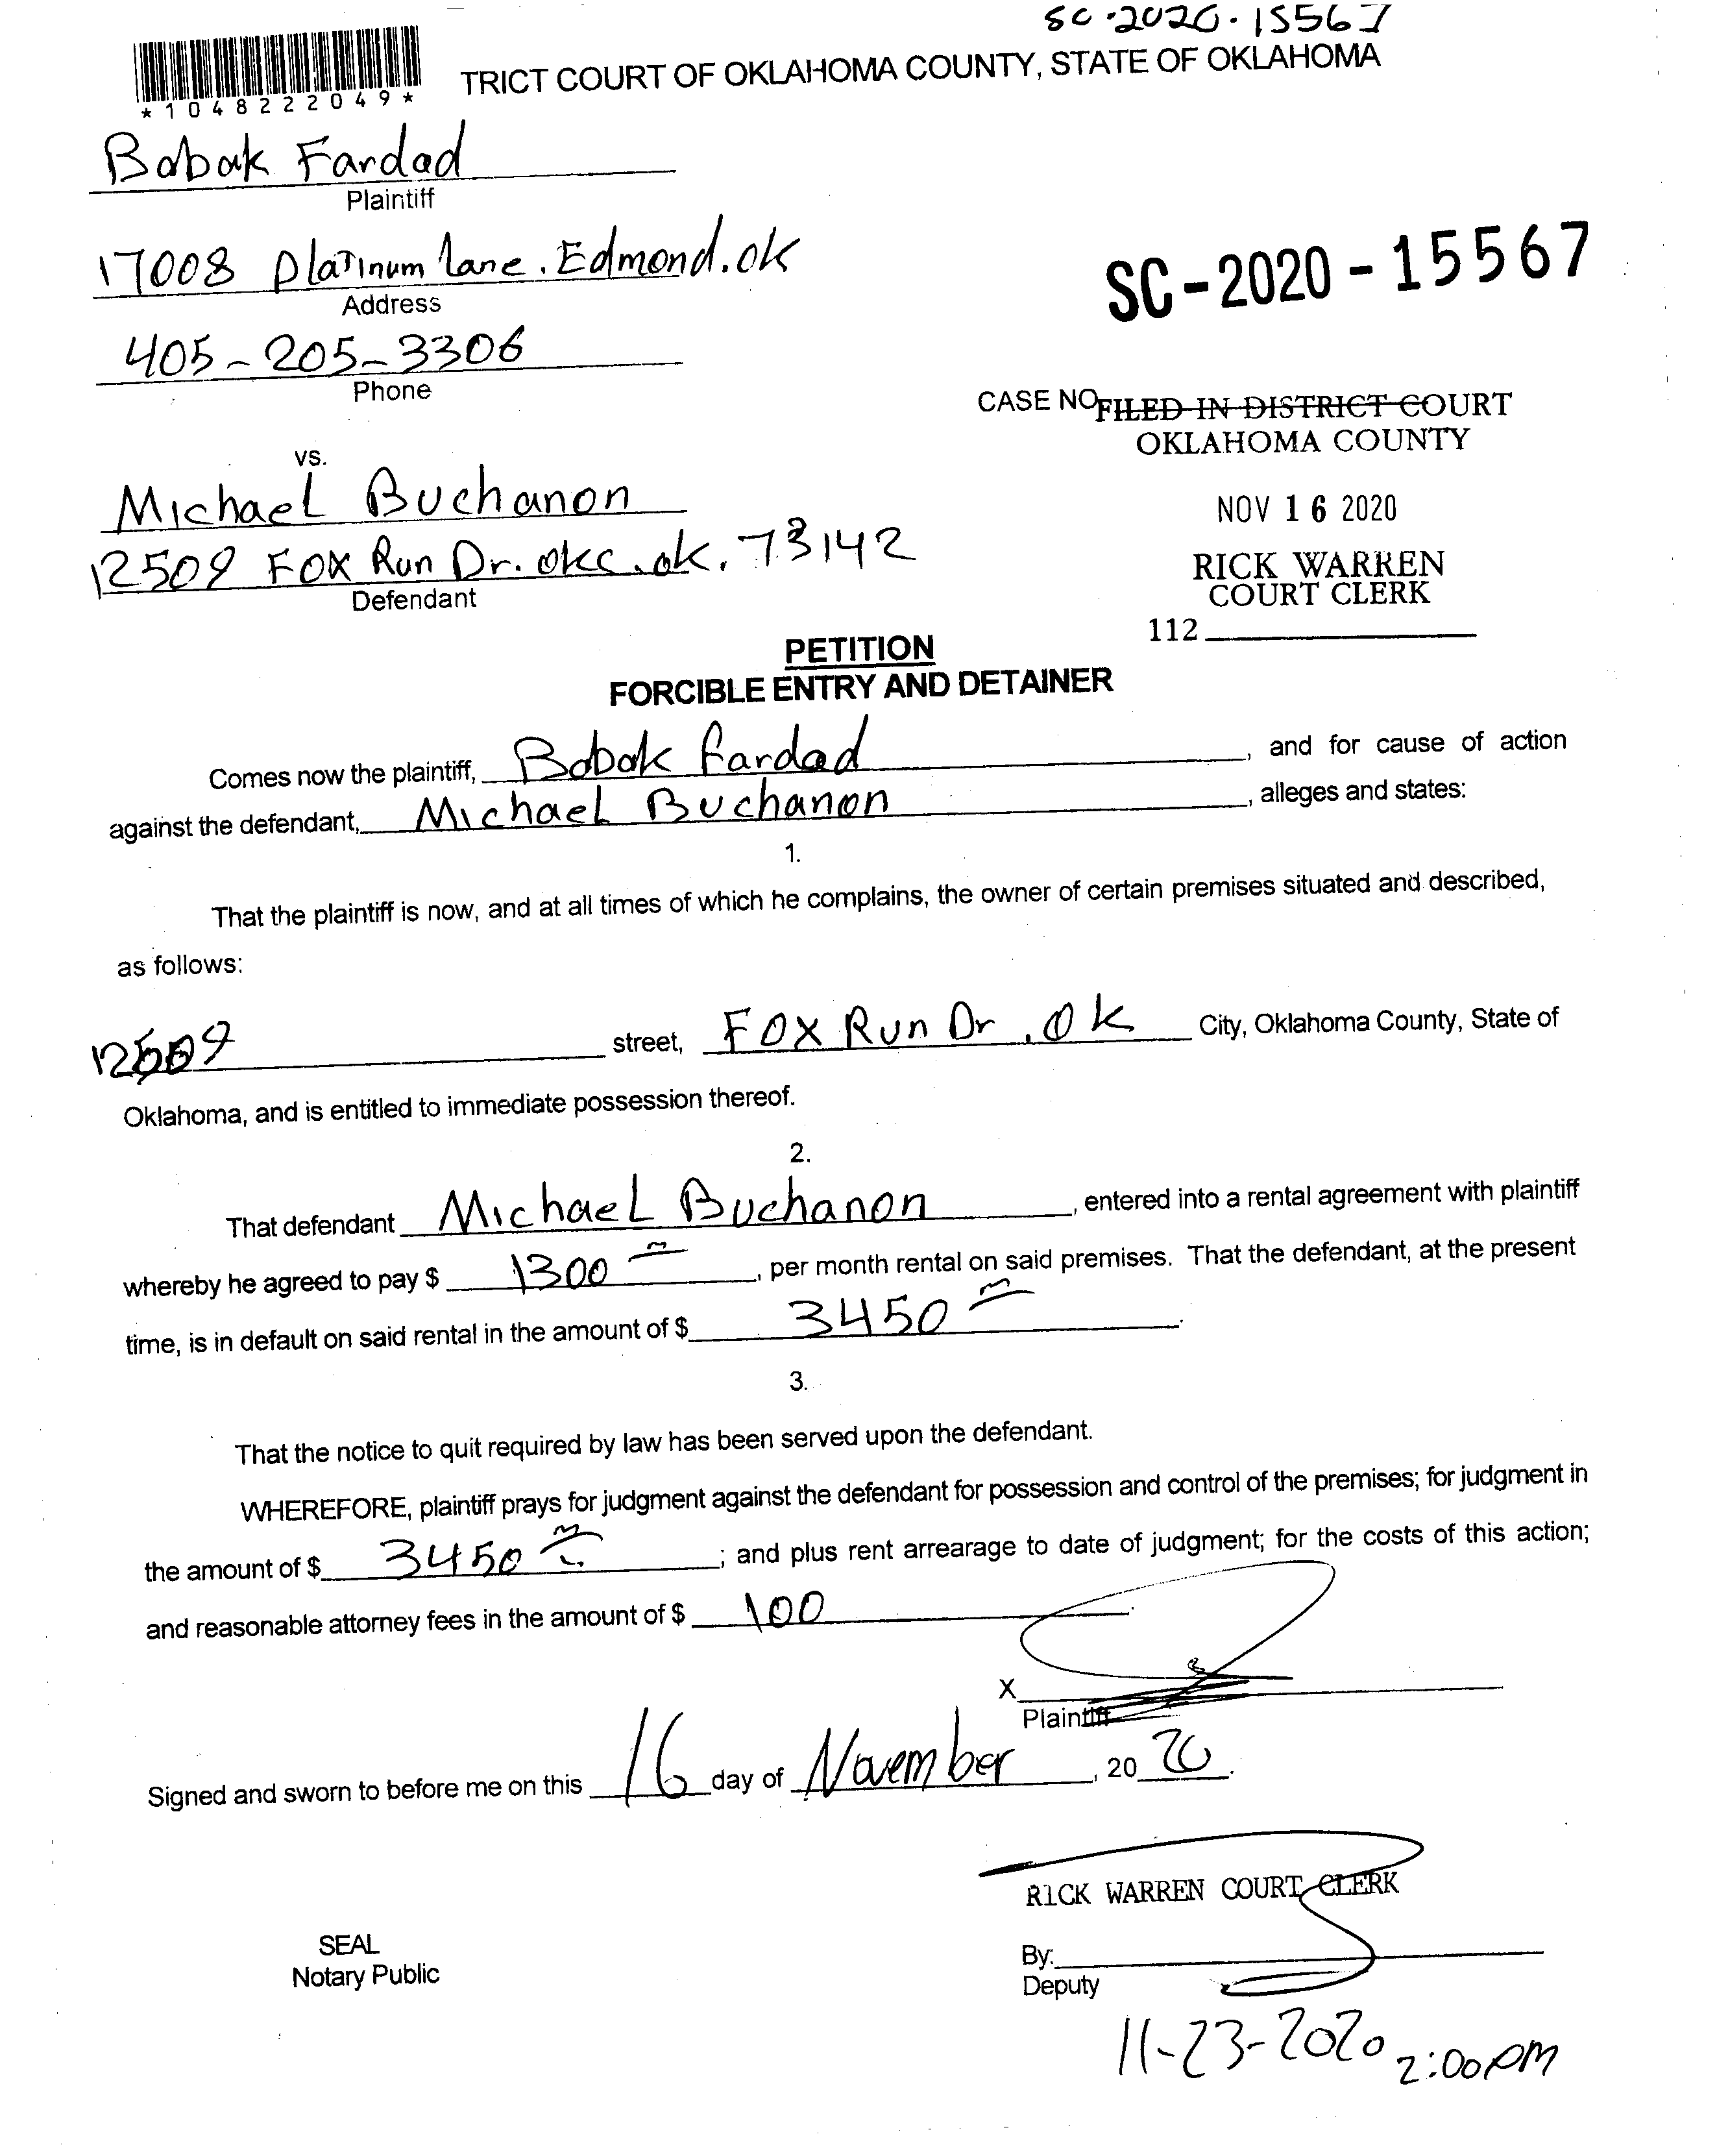 SC-2020-15567
TRICT COURT OF OKLAHOMA COUNTY, STATE OF OKLAHOMA
*1048222049*
Babak Fardad
Plaintiff
17008 Platinum Lane. Edmond. OK
Address
SC-2020-15567
405-205-3306
Phone
CASE NO FILED IN DISTRICT COURT
OKLAHOMA COUNTY
vs.
Michael Buchanon
NOV 16 2020
12509 Fox Run Dr. OKC. OK. 73142
Defendant
RICK WARREN
COURT CLERK
112
PETITION
FORCIBLE ENTRY AND DETAINER
Comes now the plaintiff, Babak Fardad, and for cause of action
against the defendant, Michael Buchanon, alleges and states:
1.
That the plaintiff is now, and at all times of which he complains, the owner of certain premises situated and described,
as follows:
12509 street, Fox Run Dr. OK City, Oklahoma County, State of
Oklahoma, and is entitled to immediate possession thereof.
2.
That defendant Michael Buchanon, entered into a rental agreement with plaintiff
whereby he agreed to pay $ 1300, per month rental on said premises. That the defendant, at the present
time, is in default on said rental in the amount of $ 3450.
3.
That the notice to quit required by law has been served upon the defendant.
WHEREFORE, plaintiff prays for judgment against the defendant for possession and control of the premises; for judgment in
the amount of $ 3450; and plus rent arrearage to date of judgment; for the costs of this action;
and reasonable attorney fees in the amount of $ 100.
X
Plaintiff
Signed and sworn to before me on this 16 day of November, 2020.
RICK WARREN COURT CLERK
SEAL
Notary Public
By:
Deputy
11-23-2020 2:00 PM